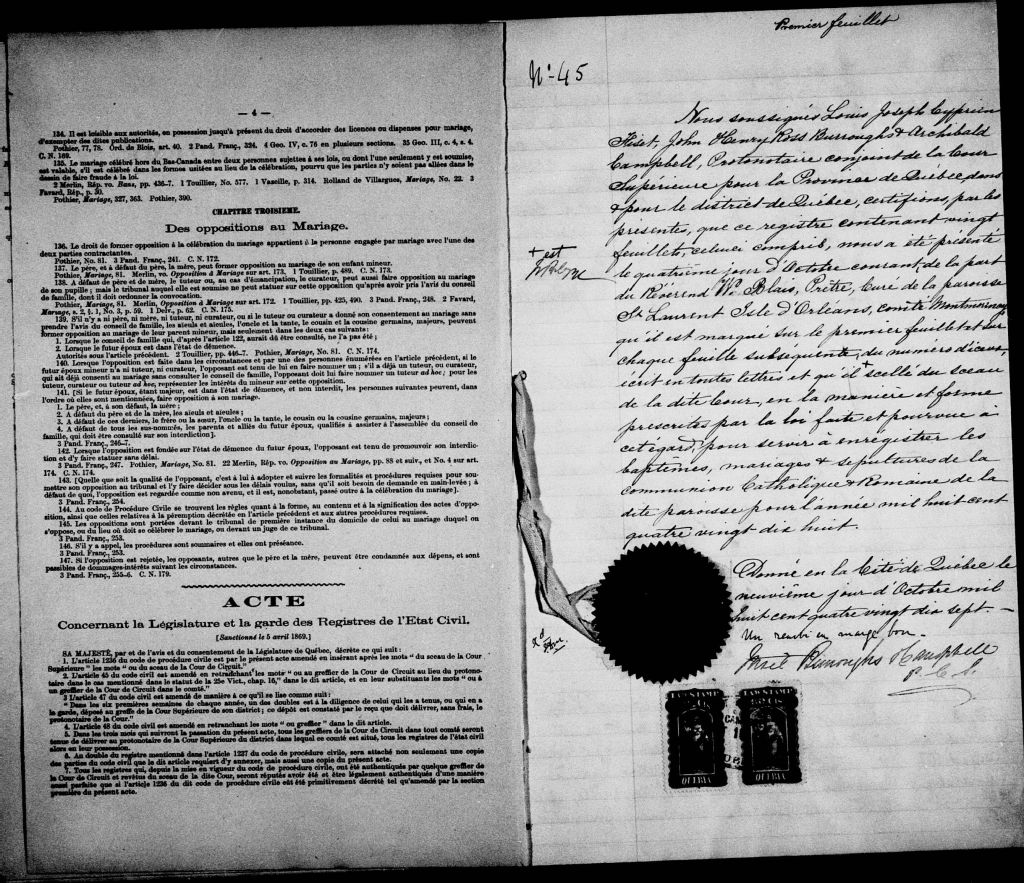 — 4 —
134. Il est loisible aux autorités, en possession jusqu'à présent du droit d'accorder des licences ou dispenses pour mariage,
d'exempter des dites publications.
Pothier, 77, 78. Ord. de Blois, art. 40. 2 Pand. Franç., 324. 4 Geo. IV, c. 76 en plusieurs sections. 35 Geo. III, c. 4, s. 4.
C. N. 169.
135. Le mariage célébré hors du Bas-Canada entre deux personnes sujettes à ses lois, ou dont l'une seulement y est soumise,
est valable, s'il est célébré dans les formes usitées au lieu de la célébration, pourvu que les parties n'y soient pas allées dans le
dessein de faire fraude à la loi.
2 Merlin, Rép. vo. Bans, pp. 436-7. 1 Touillier, No. 577. 1 Vazeille, p. 314. Rolland de Villargues, Mariage, No. 22. 3
Favard, Rép., p. 30.
Pothier, Mariage, 327, 363. Pothier, 390.
CHAPITRE TROISIEME.
Des oppositions au Mariage.
136. Le droit de former opposition à la célébration du mariage appartient à la personne engagée par mariage avec l'une des
deux parties contractantes.
Pothier, No. 81. 3 Pand. Franç., 241. C. N. 172.
137. Le père, et à défaut du père, la mère, peut former opposition au mariage de son enfant mineur.
Pothier, Mariage, 81. Merlin, vo. Opposition à Mariage sur art. 173, 1 Touillier, p. 489. C. N. 173.
138. A défaut de père et de mère, le tuteur ou, au cas d'émancipation, le curateur, peut aussi faire opposition au mariage
de son pupille ; mais le tribunal auquel elle est soumise ne peut statuer sur cette opposition qu'après avoir pris l'avis du conseil
de famille, dont il doit ordonner la convocation.
Pothier, Mariage, 81. Merlin, Opposition à Mariage sur art. 172. 1 Touillier, pp. 425, 490. 3 Pand. Franç., 248. 2 Favard,
Mariage, s. 2, § 1, No. 3, p. 59. 1 Delv., p. 62. C. N. 175.
139. S'il n'y a ni père, ni mère, ni tuteur, ni curateur, ou si le tuteur ou curateur a donné son consentement au mariage sans
prendre l'avis du conseil de famille, les aïeuls et aïeules, l'oncle et la tante, le cousin et la cousine germains, majeurs, peuvent
former opposition au mariage de leur parent mineur, mais seulement dans les deux cas suivants :
1. Lorsque le conseil de famille qui, d'après l'article 122, aurait dû être consulté, ne l'a pas été ;
2. Lorsque le futur époux est dans l'état de démence.
Autorités sous l'article précédent. 2 Touillier, pp. 446-7. Pothier, Mariage, No. 81. C. N. 174.
140. Lorsque l'opposition est faite dans les circonstances et par une des personnes énumérées en l'article précédent, si le
futur époux mineur n'a ni tuteur, ni curateur, l'opposant est tenu de lui en faire nommer un ; s'il a déjà un tuteur, ou curateur,
qui ait déjà consenti au mariage sans consulter le conseil de famille, l'opposant doit lui faire nommer un tuteur ad hoc ; pour les
tuteur, curateur ou tuteur ad hoc, représenter les intérêts du mineur sur cette opposition.
141. [Si le futur époux, étant majeur, est dans l'état de démence, et non interdit, les personnes suivantes peuvent, dans
l'ordre où elles sont mentionnées, faire opposition à son mariage.
1. Le père, et, à son défaut, la mère ;
2. A défaut du père et de la mère, les aïeuls et aïeules ;
3. A défaut de ces derniers, le frère ou la sœur, l'oncle ou la tante, le cousin ou la cousine germains, majeurs ;
4. A défaut de tous les sus-nommés, les parents et alliés du futur époux, qualifiés à assister à l'assemblée du conseil de
famille, qui doit être consulté sur son interdiction].
3 Pand. Franç., 246-7.
142. Lorsque l'opposition est fondée sur l'état de démence du futur époux, l'opposant est tenu de promouvoir son interdic-
tion et d'y faire statuer sans délai.
3 Pand. Franç., 247. Pothier, Mariage, No. 81. 22 Merlin, Rép. vo. Opposition au Mariage, pp. 88 et suiv., et No. 4 sur art.
174. C. N. 174.
143. [Quelle que soit la qualité de l'opposant, c'est à lui à adopter et suivre les formalités et procédures requises pour sou-
mettre son opposition au tribunal et l'y faire décider sous les délais voulus, sans qu'il soit besoin de demande en main-levée ; à
défaut de quoi, l'opposition est regardée comme non avenu, et il est, nonobstant, passé outre à la célébration du mariage].
3 Pand. Franç., 254.
144. Au code de Procédure Civile se trouvent les règles quant à la forme, au contenu et à la signification des actes d'oppo-
sition, ainsi que celles relatives à la péremption décrétée en l'article précédent et aux autres procédures requises.
145. Les oppositions sont portées devant le tribunal de première instance du domicile de celui au mariage duquel on
s'oppose, ou du lieu où doit se célébrer le mariage, ou devant un juge de ce tribunal.
3 Pand. Franç., 253.
146. S'il y a appel, les procédures sont sommaires et elles ont préséance.
3 Pand. Franç., 253.
147. Si l'opposition est rejetée, les opposants, autres que le père et la mère, peuvent être condamnés aux dépens, et sont
passibles de dommages-intérêts suivant les circonstances.
3 Pand. Franç., 255-6. C. N. 179.
ACTE
Concernant la Législature et la garde des Registres de l'Etat Civil.
[Sanctionné le 5 avril 1869.]
SA MAJESTÉ, par et de l'avis et du consentement de la Législature de Québec, décrète ce qui suit :
1. L'article 1236 du code de procédure civile est par le présent acte amendé en insérant après les mots " du sceau de la Cour
Supérieure " les mots " ou du sceau de la Cour de Circuit."
2. L'article 45 du code civil est amendé en retranchant les mots " ou au greffier de la Cour de Circuit au lieu du protono-
taire dans le cas mentionné dans le statut de la 25e Vict., chap. 16," dans le dit article, et en leur substituants les mots " ou à
un greffier de la Cour de Circuit dans le comté."
3 L'article 47 du code civil est amendé de manière à ce qu'il se lise comme suit :
" Dans les six premières semaines de chaque année, un des doubles est à la diligence de celui qui les a tenus, ou qui en a
la garde, déposé au greffe de la Cour Supérieure de son district ; ce dépôt est constaté par le reçu que doit délivrer, sans frais, le
protonotaire de la Cour."
4. L'article 48 du code civil est amendé en retranchant les mots " ou greffier " dans le dit article.
5. Dans les trois mois qui suivront la passation du présent acte, tous les greffiers de la Cour de Circuit dans tout comté seront
tenus de délivrer au protonotaire de la Cour Supérieure du district dans lequel ce comté est situé, tous les registres de l'état civil
alors en leur possession.
6. Au double du registre mentionné dans l'article 1237 du code de procédure civile, sera attaché non seulement une copie
des parties du code civil que le dit article requiert d'y annexer, mais aussi une copie du présent acte.
7. Tous les registres qui, depuis la mise en vigueur du code de procédure civile, ont été authentiqués par quelque greffier de
la Cour de Circuit et revêtus du sceau de la dite Cour, seront réputés avoir été et être légalement authentiqués d'une manière
aussi parfaite que si l'article 1236 du dit code de procédure civile eût été primitivement décrété tel qu'amendé par la section
première du présent acte.
Premier feuillet
No. 45
Nous soussignés Louis Joseph Cyprien
Fiset, John Henry Ross Burroughs & Archibald
Campbell, Protonotaire conjoint de la Cour
Supérieure pour la Province de Québec dans
& pour le district de Québec, certifions, par les
présentes, que ce registre contenant vingt
feuillets, celui-ci compris, nous a été présenté
+ est
le quatrième jour d'Octobre courant, de la part
du Révérend W. Blais, Prêtre, Curé de la paroisse
St. Laurent Isle d'Orléans, comté Montmorency
qu'il est marqué sur le premier feuillet et sur
chaque feuille subséquente, du numéro d'iceux,
écrit en toutes lettres et qu'il scellé du sceau
de la dite Cour, en la manière et forme
prescrites par la loi faite et pourvue à
cet égard, pour servir à enregistrer les
baptêmes, mariages & sépultures de la
communion Catholique & Romaine de la
dite paroisse pour l'année mil huit cent
quatre vingt dix huit.
Donné en la Cité de Québec le
neuvième jour d'Octobre mil
huit cent quatre vingt dix sept. —
Un renvoi en marge bon.
Fiset Burroughs & Campbell
P. C. S.
LAW STAMP
LAW STAMP
QUEBEC
QUEBEC